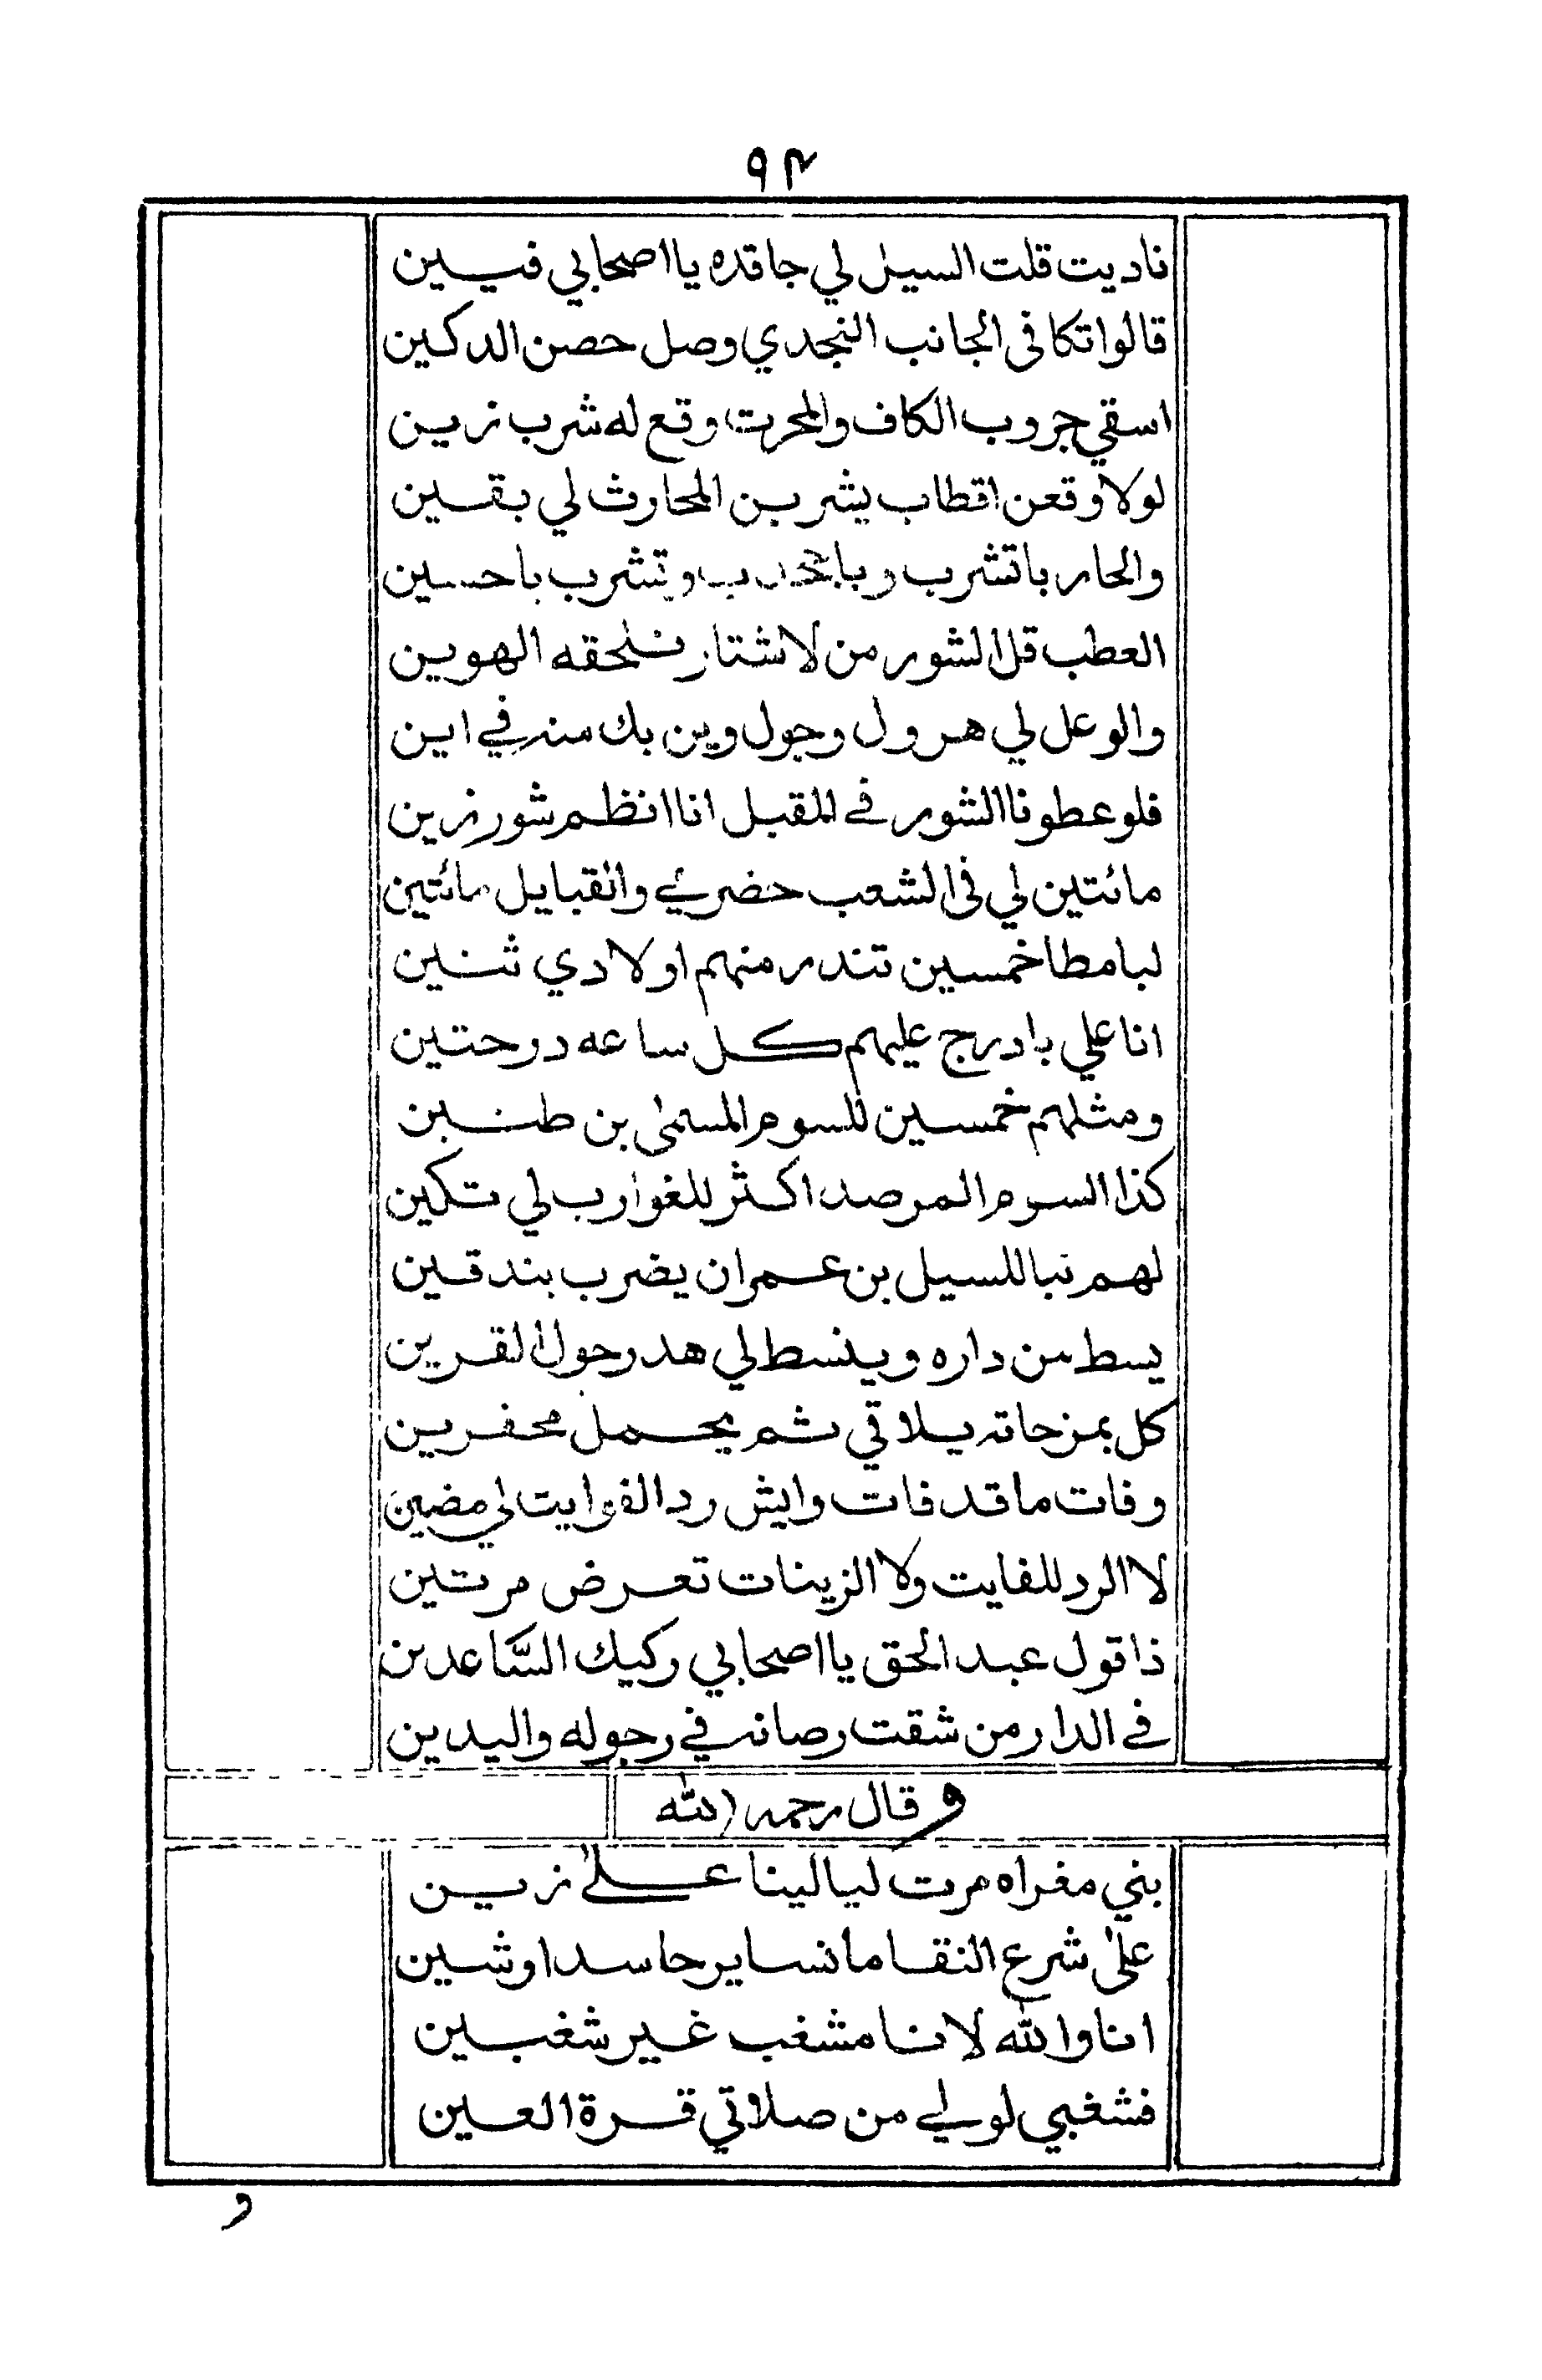 ٩٢
ناديت قلت السيل لي جا قده يا اصحابي فيين
قالوا تكا في الجانب النجدي وصل حصن الدكين
اسقي جروب الكاف والمحرت وقع له شرب زين
لولا وقعن اقطاب يشربن المحارث لي بقين
والحار باتشرب وتشرب باحسين
العطب قل الشور من لاشتار نلحقه الهوين
والوعل لي هرول وجول وين بك منه في اين
فلو عطونا الشور في المقبل انا انظم شور زين
مائتين لي في الشعب حضري والقبايل مائتين
لبامطا خمسين تندر منهم اولادي ثنين
انا علي بادرج عليهم كل ساعه درحتين
ومثلهم خمسين للسوم المسمى بن طنبن
كذا السوم المرصد اكثر للغوارب لي تكين
لهم نبا للسيل بن عمران يضرب بندقين
يسط من داره وينسط لي هدر حول القرين
كل بمزحاته يلاقي ثم يحمل محفرين
وفات ما قد فات وايش رد الفوايت لي مضين
لا الرد للفايت ولا الزينات تعرض مرتين
ذا قول عبد الحق يا اصحابي ركيك الساعدين
في الدار من شقت رصانه في رجوله واليدين
وقال رحمه الله
بني مغراه مرت ليالينا على زين
على شرع النقا ما نساير حاسد اوشين
انا والله لا نا مشغب غير شغبين
فشغبي لولي من صلاتي قرة العين
و